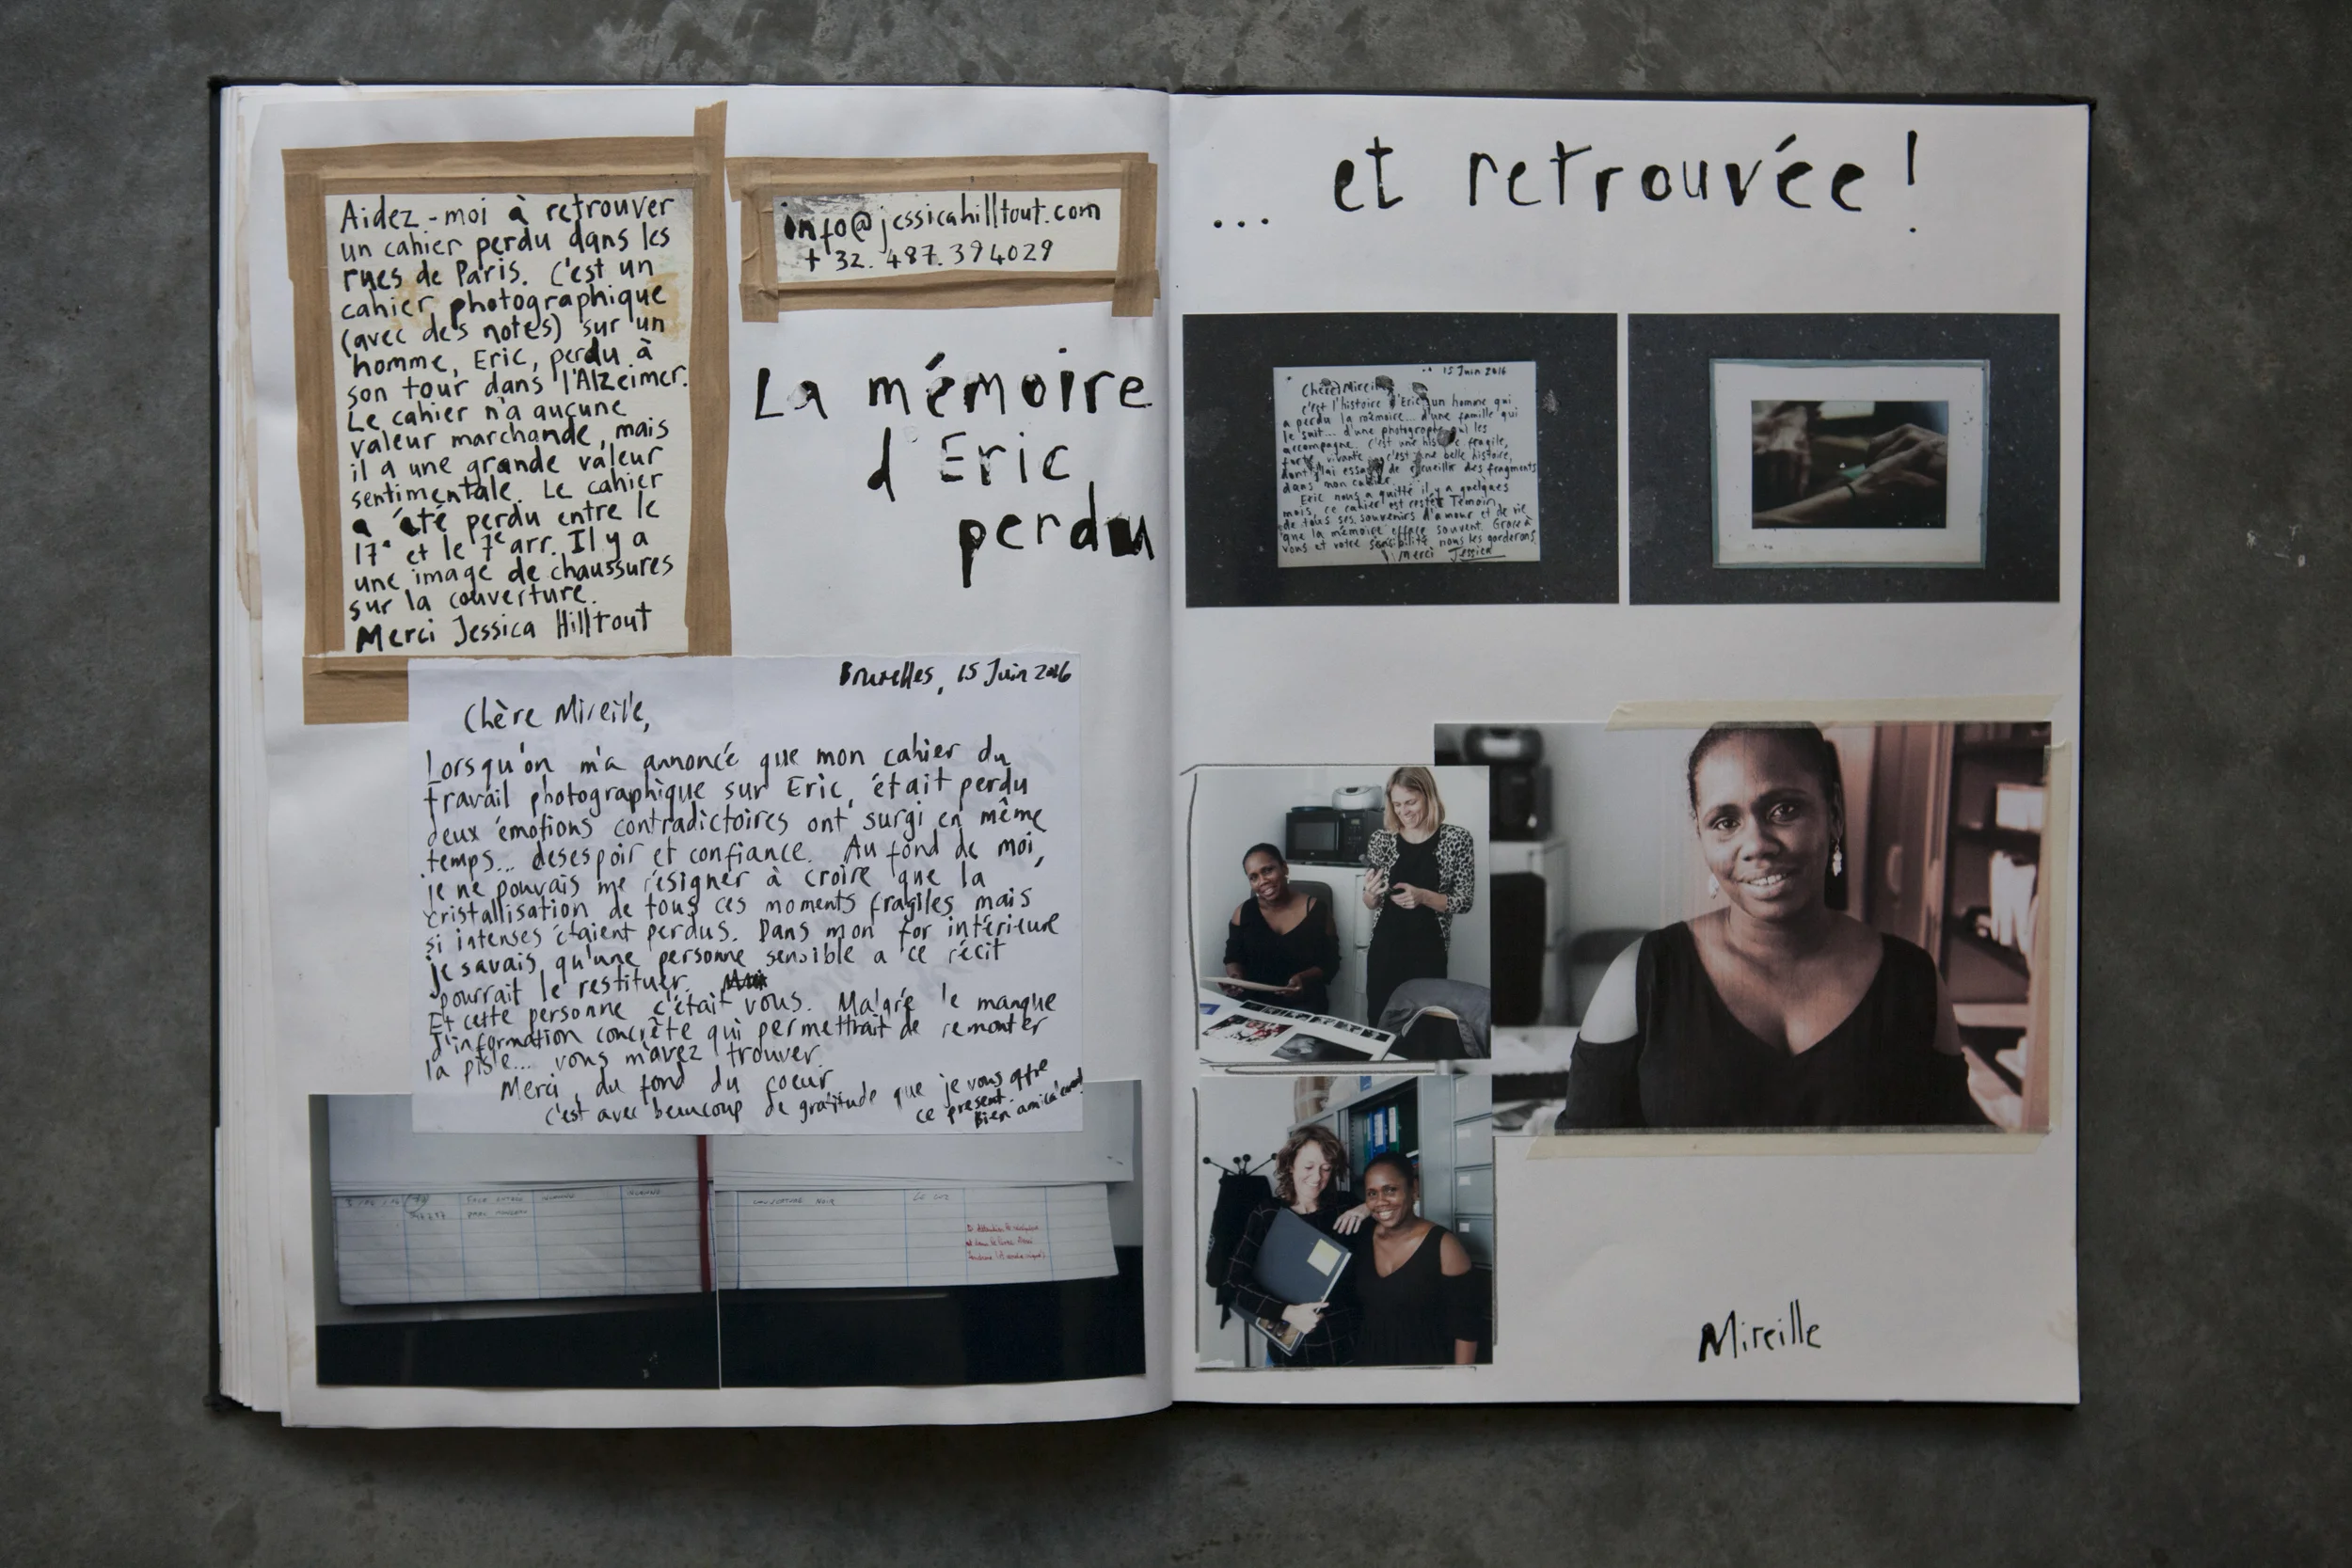 Aidez-moi à retrouver
un cahier perdu dans les
rues de Paris. C'est un
cahier photographique
(avec des notes) sur un
homme, Eric, perdu à
son tour dans l'Alzeimer.
Le cahier n'a aucune
valeur marchande, mais
il a une grande valeur
sentimentale. Le cahier
a été perdu entre le
17e et le 7e arr. Il y a
une image de chaussures
sur la couverture.
Merci Jessica Hilltout
info@jessicahilltout.com
+32.487.394029
La mémoire
d'Eric
perdu
Bruxelles, 15 Juin 2016
Chère Mireille,
Lorsqu'on m'a annoncé que mon cahier du
travail photographique sur Eric, était perdu
deux émotions contradictoires ont surgi en même
temps... desespoir et confiance. Au fond de moi,
je ne pouvais me résigner à croire que la
cristallisation de tous ces moments fragiles mais
si intenses étaient perdus. Dans mon for intérieure
je savais qu'une personne sensible a ce récit
pourrait le restituer.
Et cette personne c'était vous. Malgré le manque
d'information concrète qui permettrait de remonter
la piste... vous m'avez trouver.
Merci, du fond du coeur
c'est avec beaucoup de gratitude que je vous offre
ce présent.
Bien amicalement
COUVERTURE NOIR
... et retrouvée!
15 Juin 2016
Chère Mireille
c'est l'histoire d'Eric, un homme qui
a perdu la mémoire... d'une famille qui
le suit... d'une photographe qui les
accompagne. C'est une histoire fragile,
forte, vivante... c'est une belle histoire,
dont j'ai essayé de recueillir des fragments
dans mon cahier.
Eric nous a quitté il y a quelques
mois, ce cahier est resté Témoin,
de tous ses souvenirs d'amour et de vie
que la mémoire efface souvent. Grace à
vous et votre sensibilité nous les garderons
Merci Jessica
Mireille